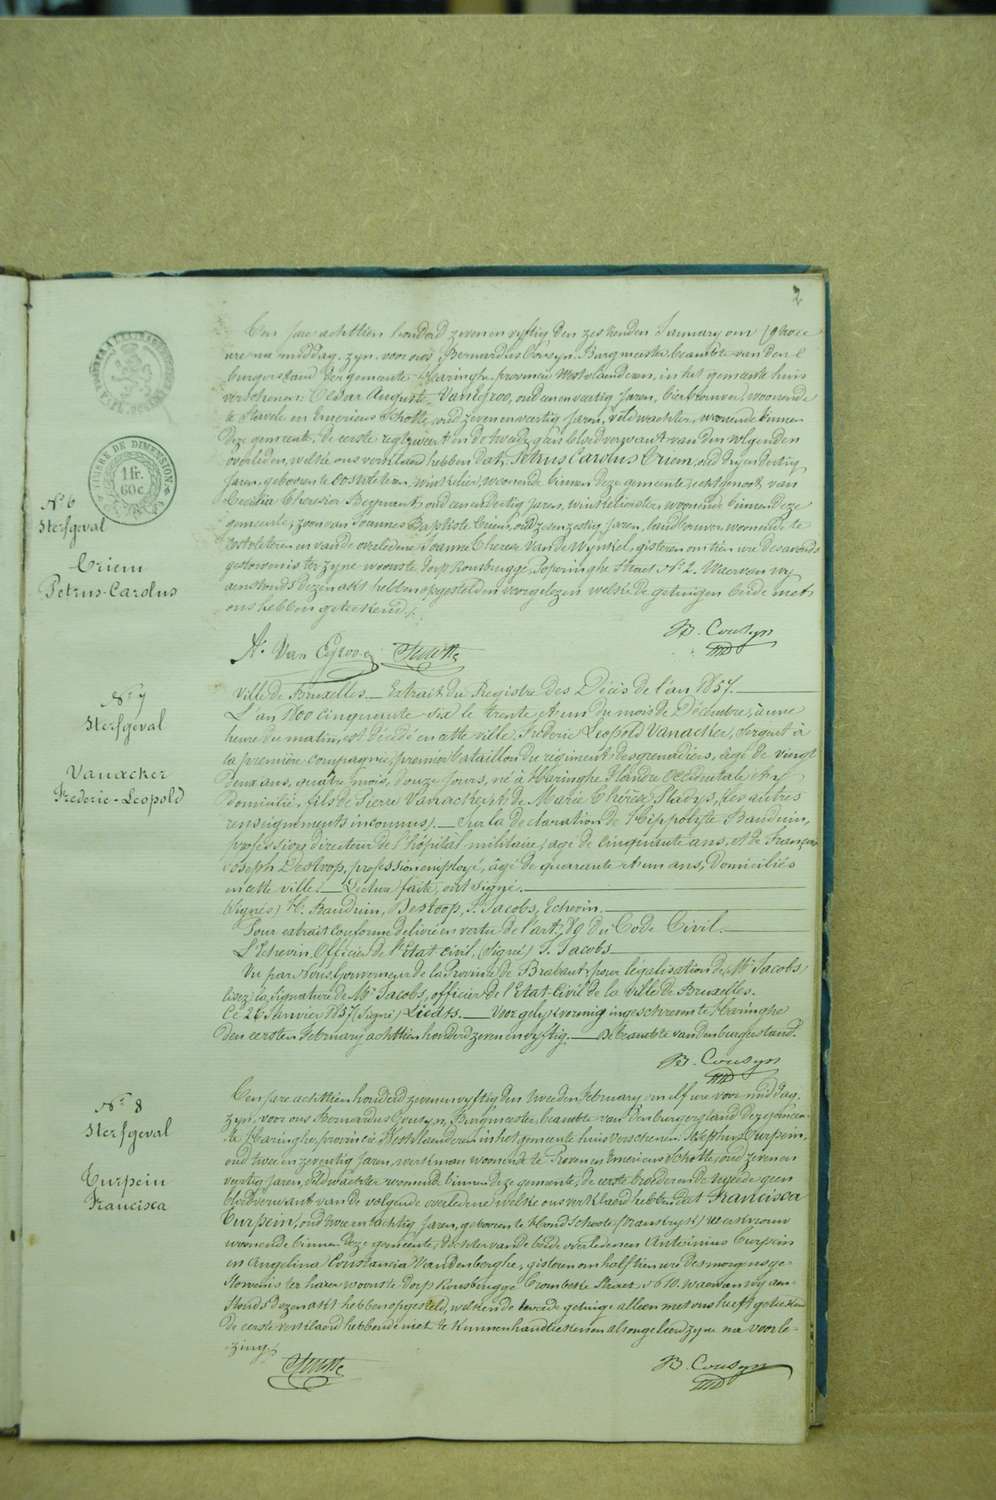 2
TIMBRE DE DIMENSION
1 fr.
60 c
Nº 6
Sterfgeval
Criem
Petrus-Carolus
Een jare achttien honderd zevenenvyftig den zestienden January om
ure na middag, zyn voor ons Bernardus Cousyn, Burgmeester, beambte van den
burgerstand der gemeente Haringhe, provincie Westvlaanderen, in het gemeente huis
verschenen: César Auguste Vanegroo, oud eenenveertig jaren, bierbrouwer, woonende
te Stavele en Emericus Schotte, oud zevenenveertig jaren, veldwachter, woonende binnen
deze gemeente, de eerste en de tweede geen bloedverwant van den volgenden
overleden, welke ons verklaerd hebben dat, Petrus Carolus Criem, oud dryendertig
jaren, geboren te Oostvleteren, winkelier, woonende binnen deze gemeente, echtgenoot van
Cecilia Theresia Begnant, oud eenendertig jaren, winkelierster, woonende binnen deze
gemeente, zoon van Joannes Baptiste Criem, oud zeenzestig jaren, landbouwer, woonende te
Oostvleteren en van de overledene Joanna Therese Van de Wynkel, gisteren om tien ure des avonds
gestorven is ter zyne woonste dorp Rousbrugge, Poperinghe straet Nº 2. Waervan wy
aenstonds dezen akt hebben opgesteld en voorgelezen welke de getuigen beide met
ons hebben geteekend.
A. Van Egroo
Schotte
B. Cousyn
Nº 7
Sterfgeval
Vanacker
Frederic-Leopold
Ville de Bruxelles. — Extrait du Registre des Décès de l'an 1857.
L'an 1800 cinquante six le trente et un du mois de Décembre, à une
heure du matin, est décédé en cette ville, Fréderic Leopold Vanacker, sergent à
la première compagnie, premier bataillon du régiment des grenadiers, âgé de vingt
deux ans, quatre mois, douze jours, né à Haringhe Flandre Occidentale et y
domicilié, fils de Pierre Vanacker et de Marie Thérèse Stadys, (les autres
renseignements inconnus). — Sur la déclaration de Hippolyte Bauduin,
profession directeur de l'hôpital militaire, âgé de cinquante ans, et de François
Joseph Destoop, profession employé, âgé de quarante et un ans, domiciliés
en cette ville. — Lecture faite, ont signé.
(Signés) H. Bauduin, Destoop, J. Jacobs, Echevin.
Pour extrait conforme délivré en vertu de l'art. 80 du Code Civil.
L'Echevin, Officier de l'état civil, (Signé) J. Jacobs
Vu par Nous, Gouverneur de la Province de Brabant, pour légalisation de Mr Jacobs
lisez: la signature de Mr Jacobs, officier de l'Etat-Civil de la ville de Bruxelles.
Ce 26 Janvier 1857 (Signé) Liedts. — Voor gelykvormig ingeschreven te Haringhe
den eersten February achttien honderd zeven en vyftig. — De beambte van den burgerstand.
B. Cousyn
Nº 8
Sterfgeval
Turpein
Francisca
Een jare achttien honderd zevenenvyftig den tweeden February om elf ure voor middag,
zyn voor ons Bernardus Cousyn, Burgmeester, beambte van den burgerstand der gemeen-
te Haringhe, provincie Westvlaanderen in het gemeente huis verschenen: Josephus Turpein,
oud twee en zeventig jaren, werkman woonende te Proven en Emericus Schotte, oud zeven en
veertig jaren, veldwachter woonende binnen deze gemeente, de eerste broeder en de tweede geen
bloedverwant van de volgende overledene welke ons verklaerd hebben dat Francisca
Turpein, oud twee en tachtig jaren, geboren te Hondschoote (Frankryk) werkvrouw
woonende binnen deze gemeente, dochter van de beide overledenen Antoninus Turpein
en Angelina Constancia Vandenberghe, gisteren om half tien ure des morgens ge-
storven is ter harer woonste dorp Rousbrugge Crombeke straet, Nº 10. Waervan wy aen-
stonds dezen akt hebben opgesteld, welken de tweede getuige alleen met ons heeft geteekend
de eerste verklaerd hebbende niet te kunnen handteekenen als ongeleerd zynde na voorle-
zing.
Schotte
B. Cousyn